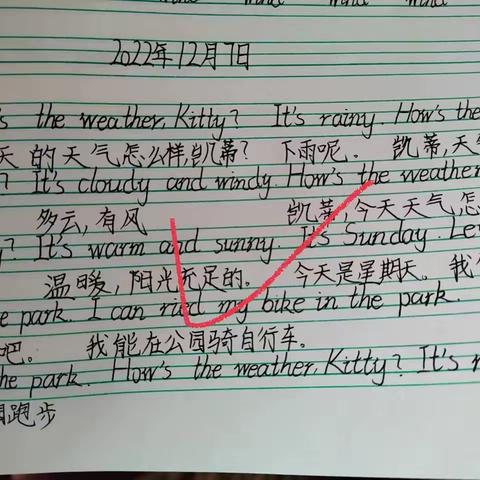 2022年12月7日
's the weather, Kitty? It's rainy. How's the
天的天气怎么样,凯蒂? 下雨呢。 凯蒂,天
? It's cloudy and windy. How's the weather
多云,有风 凯蒂,今天天气怎
? It's warm and sunny. It's Sunday.
温暖,阳光充足的。 今天是星期天。
park. I can ried my bike in the park.
吧。 我能在公园骑自行车。
park. How's the weather, Kitty? It's
跑步